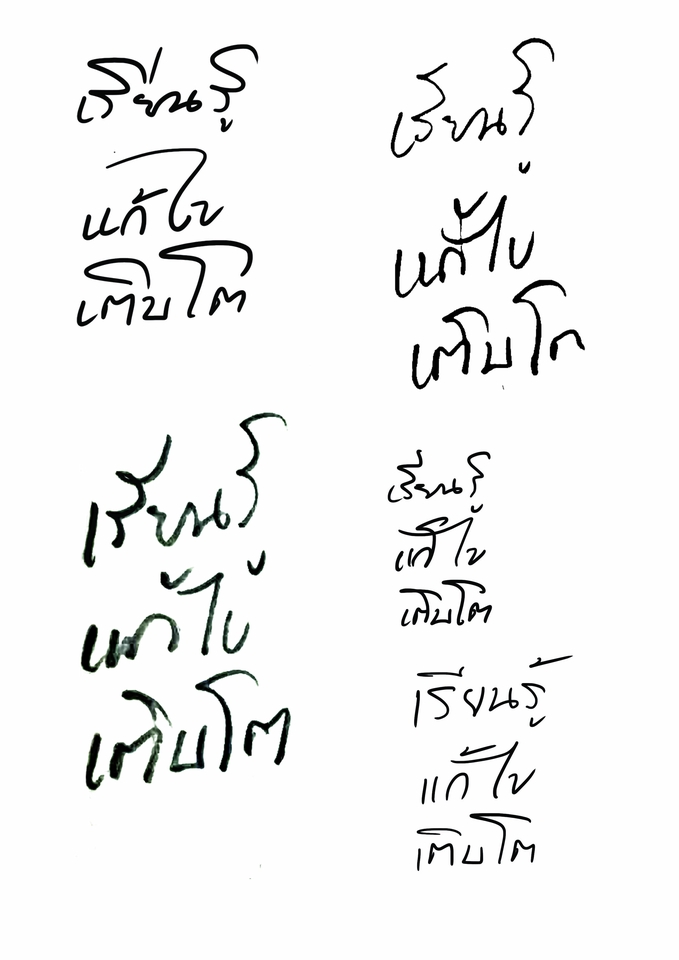 เรียนรู้
แก้ไข
เติบโต
เรียนรู้
แก้ไข
เติบโต
เรียนรู้
แก้ไข
เติบโต
เรียนรู้
แก้ไข
เติบโต
เรียนรู้
แก้ไข
เติบโต